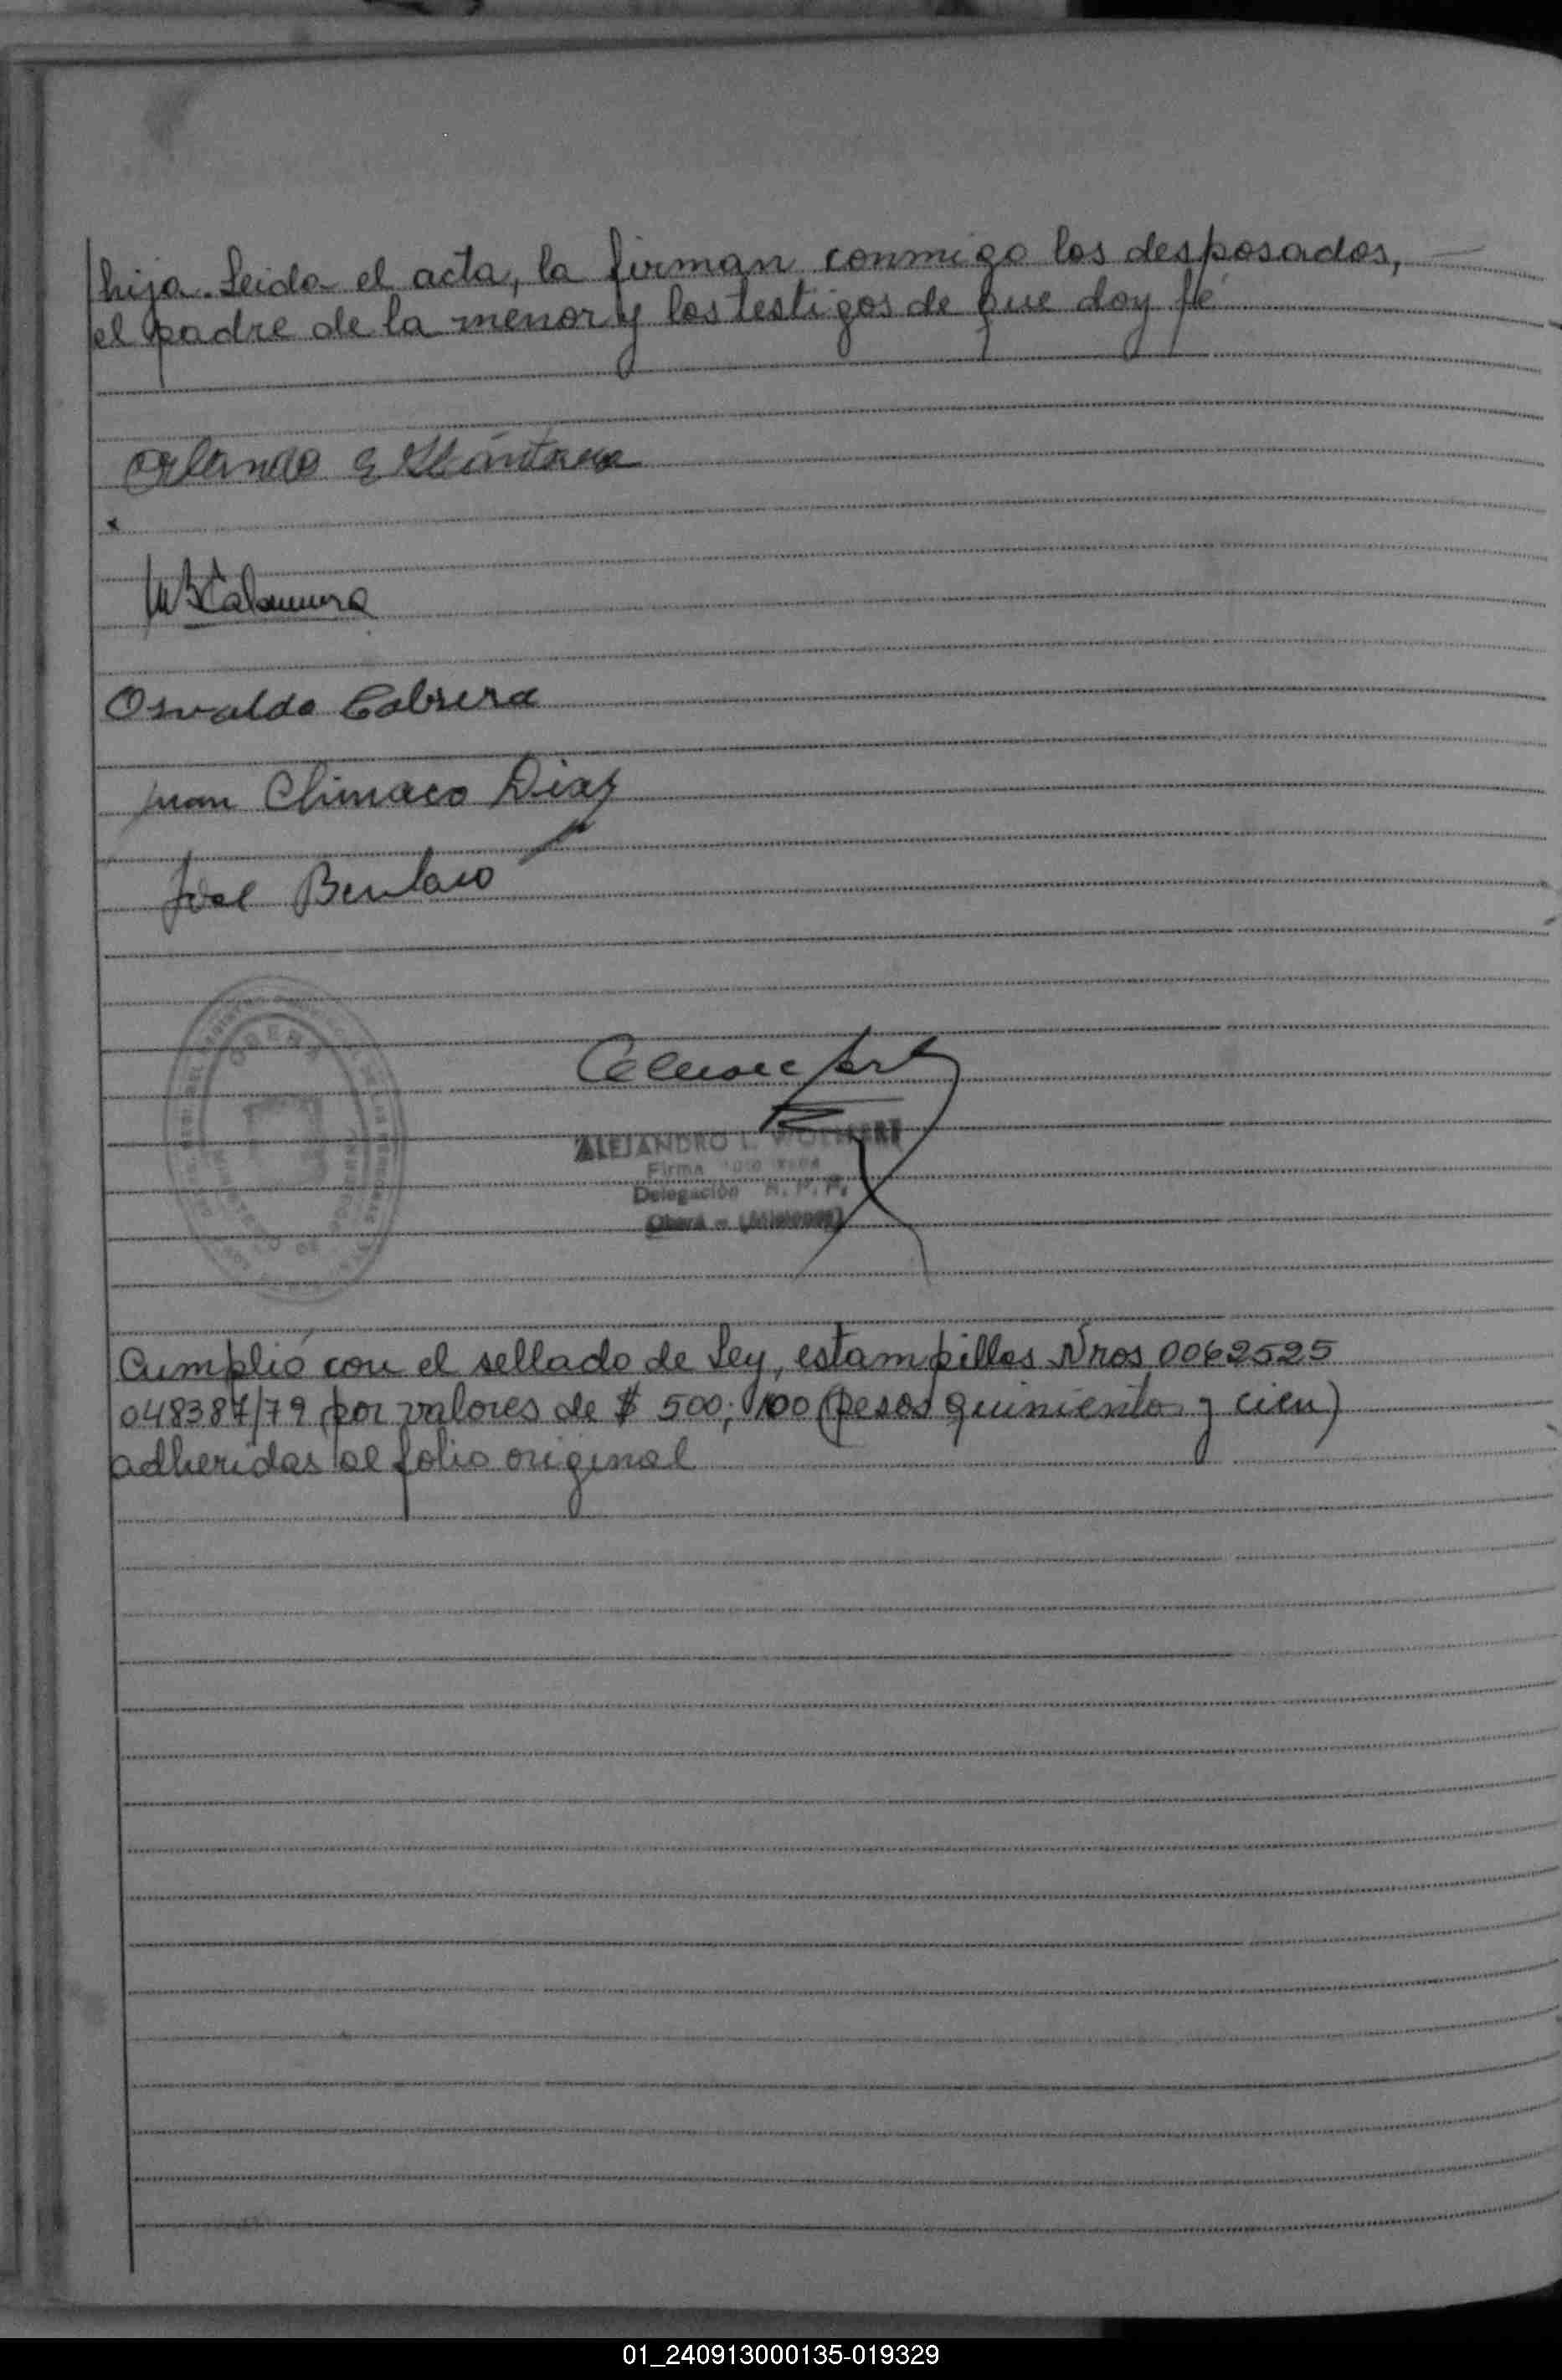 hija. Leida el acta, la firman conmigo los desposados,
el padre de la menor y los testigos de que doy fé
Orlando
Osvaldo Cabrera
Juan Climaco Diaz
José
OBERA
ALEJANDRO L.
Firma
Delegación R. P. P.
Oberá - (Misiones)
Cumplió con el sellado de Ley, estampillas Nros 0062525
048387/79 por valores de $ 500; 100 (pesos quinientos y cien)
adheridas al folio original
01_240913000135-019329